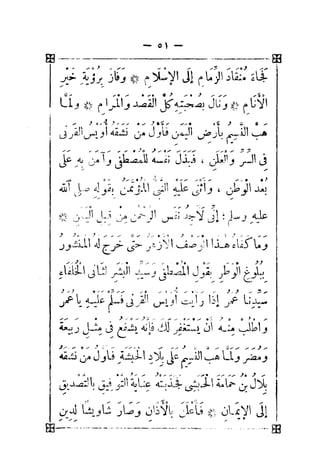 — ٥١ —
فَجَاءَ مُنْقَادَ الزِّمَامِ إِلَى الإِسْلَامِ * وَفَازَ بِرُؤْيَةِ خَيْرِ
الأَنَامِ * وَنَالَ بِصُحْبَتِهِ كُلَّ الْقَصْدِ وَالْمَرَامِ * وَلَمَّا
هَبَّ النَّسِيمُ بِأَرْضِ الْيَمَنِ فَأَوَّلُ مَنْ نَشَقَهُ أُوَيْسُ الْقَرَنِي
فِي السِّرِّ وَالْعَلَنِ ، فَبَذَلَ نَفْسَهُ لِلْمُصْطَفَى وَآمَنَ بِهِ عَلَى
بُعْدِ الْوَطَنِ ، وَأَثْنَى عَلَيْهِ النَّبِيُّ الْمُؤْتَمَنُ بِقَوْلِهِ صلى الله
عليه وسلم : إِنِّي لَأَجِدُ نَفَسَ الرَّحْمٰنِ مِنْ قِبَلِ الْيَمَنِ *
وَمَا كَفَاهُ هٰذَا الْوَصْفُ الْأَزْهَرُ حَتَّى خَرَجَ لَهُ الْمَنْشُورُ
بِبُلُوغِ الْوَطَرِ بِقَوْلِ الْمُصْطَفَى وَسَيِّدِ الْبَشَرِ لِثَانِي الْخُلَفَاءِ
سَيِّدِنَا عُمَرَ إِذَا رَأَيْتَ أُوَيْسَ الْقَرَنِي فَسَلِّمْ عَلَيْهِ يَا عُمَرُ
وَاطْلُبْ مِنْهُ أَنْ يَسْتَغْفِرَ لَكَ فَإِنَّهُ يَشْفَعُ فِي مِثْلِ رَبِيعَةَ
وَمُضَرَ وَلَمَّا هَبَّ النَّسِيمُ عَلَى بِلَادِ الْحَبَشَةِ فَأَوَّلُ مَنْ نَشَقَهُ
بِلَالُ بْنُ حَمَامَةَ الْحَبَشِي فَجَذَبَتْهُ عِنَايَةُ التَّوْفِيقِ بِالتَّصْدِيقِ
إِلَى الْإِيمَانِ * فَأَعْلَنَ بِالْأَذَانِ وَصَارَ شَاوِيشًا لِدِينِ